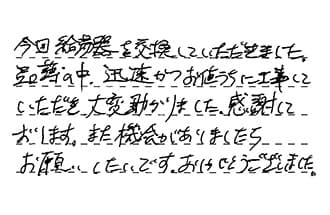 今回給湯器を交換していただきました。
品薄の中、迅速かつお値うちに工事して
いただき大変助かりました。感謝して
おります。また機会がありましたら
お願いしたいです。ありがとうございました。